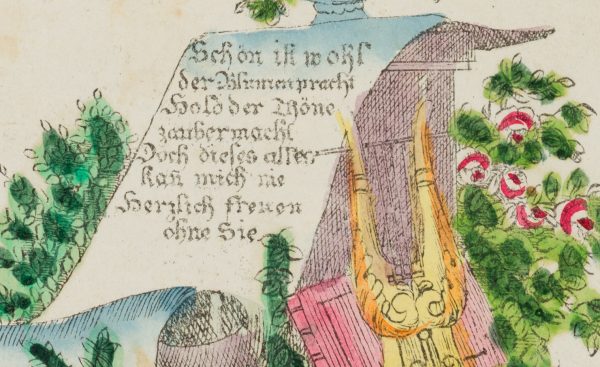 Schön ist wohl
der Blumenpracht
Hold der Thöne
zaubermacht
Doch dieses alles
kan̄ mich nie
Herzlich freuen
ohne Sie